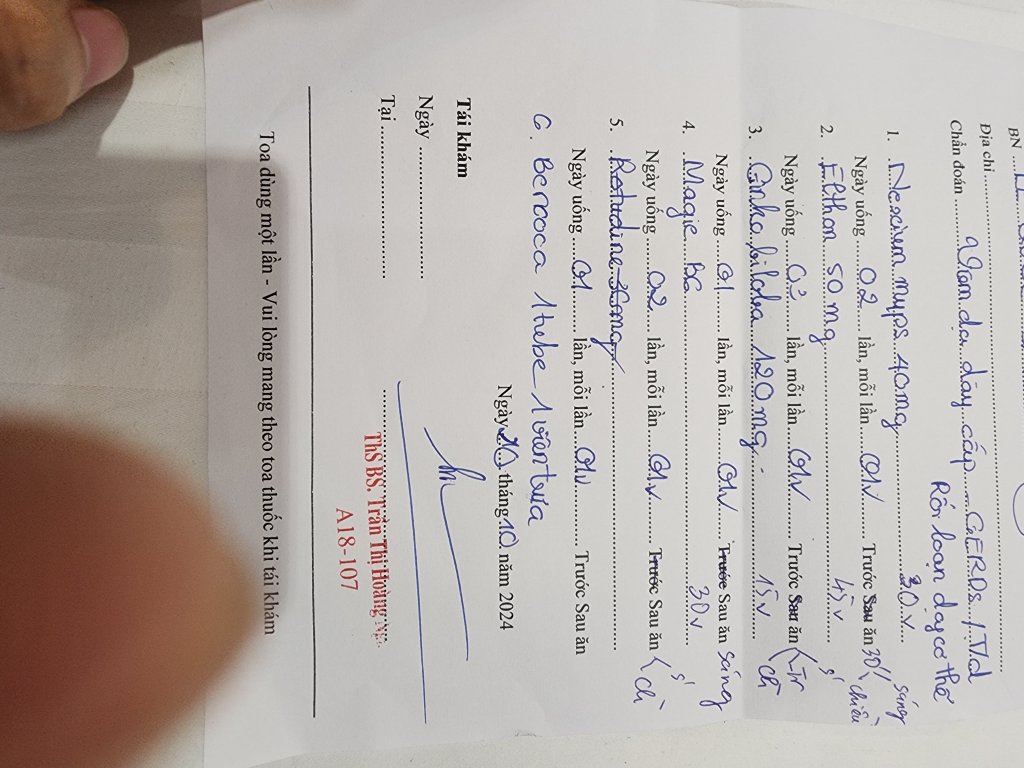 BN
Địa chỉ
Chẩn đoán Viêm dạ dày cấp GERDs / T/d
Rối loạn dạng cơ thể
1. Nexium mups 40mg 30v
Ngày uống 02 lần, mỗi lần 01v Trước Sau ăn 30' sáng
chiều
2. Epthon 50mg 45v
Ngày uống lần, mỗi lần 01v Trước Sau ăn
3. Ginko biloba 120mg 15v
Ngày uống 01 lần, mỗi lần 01v Trước Sau ăn sáng
4. Magie B6 30v
Ngày uống 02 lần, mỗi lần 01v Trước Sau ăn s
ch
5.
Ngày uống 01 lần, mỗi lần 01v Trước Sau ăn
6. Berocca 1 tube 1 viên trưa
Ngày 20 tháng 10 năm 2024
Tái khám
Ngày
Tại
ThS BS. Trần Thị Hoàng
A18-107
Toa dùng một lần - Vui lòng mang theo toa thuốc khi tái khám